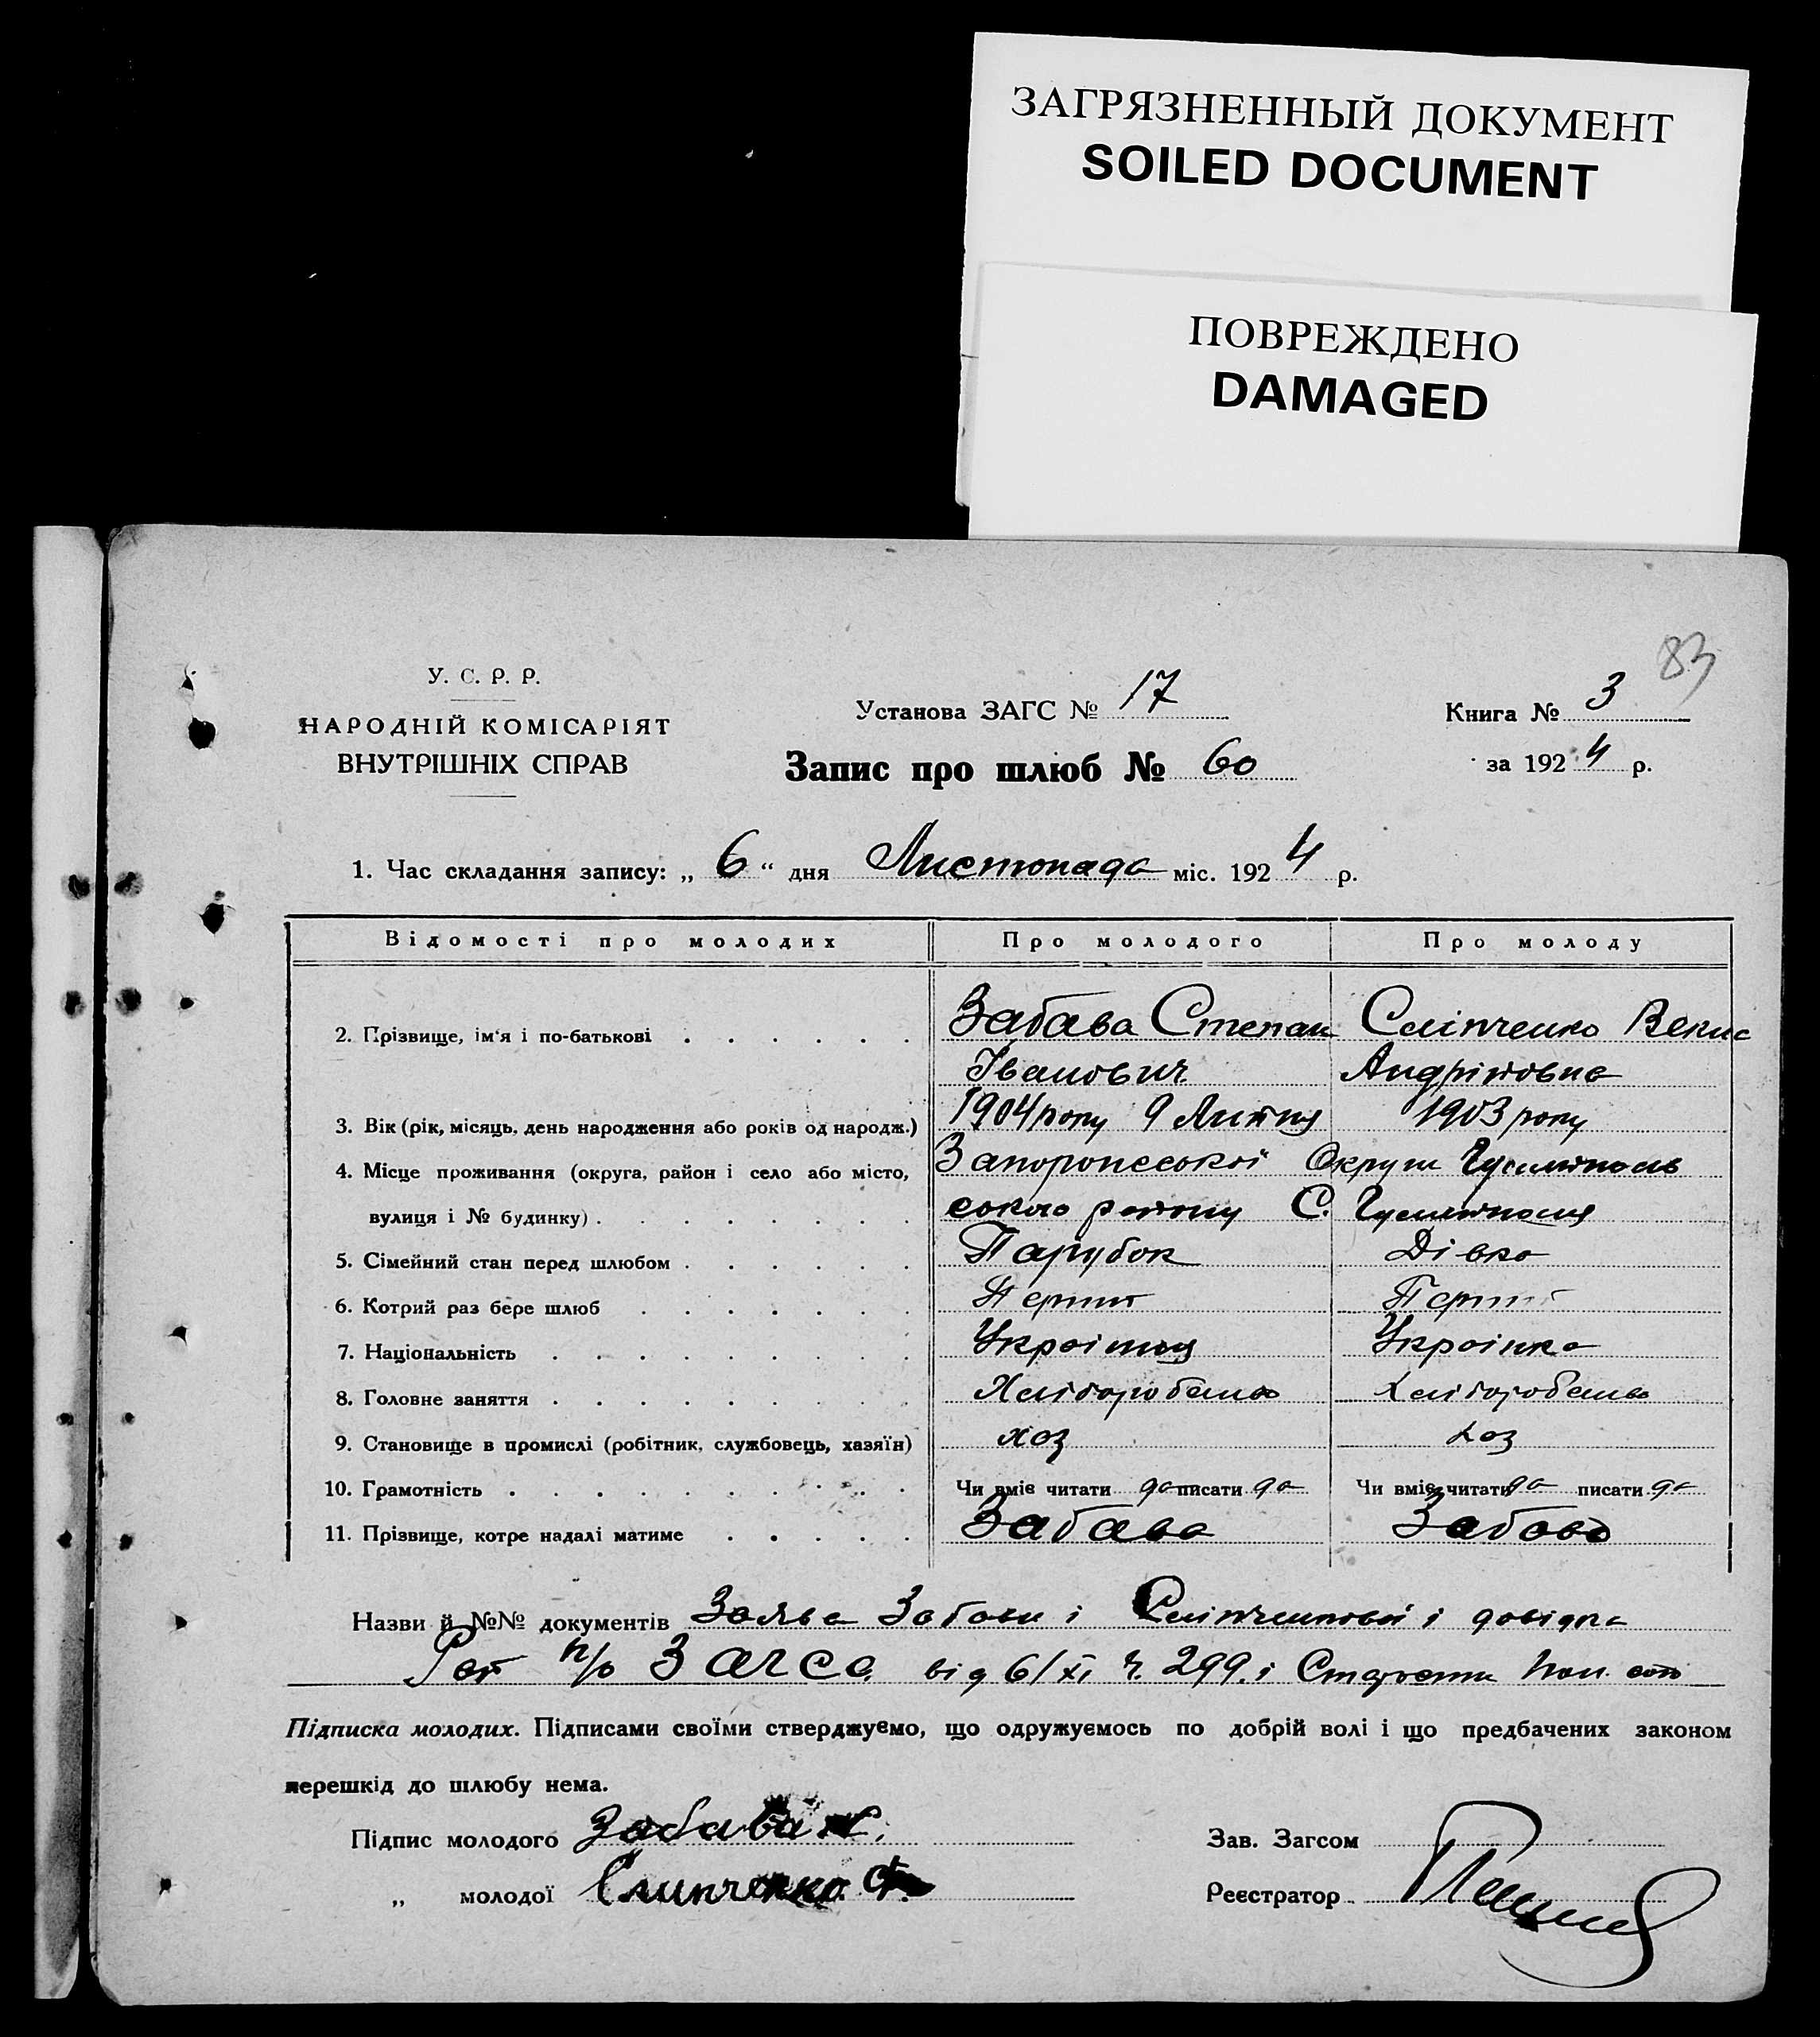 ЗАГРЯЗНЕННЫЙ ДОКУМЕНТ
SOILED DOCUMENT
ПОВРЕЖДЕНО
DAMAGED
83
У. С. Р. Р.
НАРОДНІЙ КОМІСАРІЯТ
ВНУТРІШНІХ СПРАВ
Установа ЗАГС № 17
Запис про шлюб № 60
Книга № 3
за 1924 р.
1. Час складання запису: „ 6 “ дня Листопада міс. 1924 р.
Відомості про молодих Про молодого Про молоду
2. Прізвище, ім'я і по-батькові Забава Степан Сліпченко
Іванович Андріївна
3. Вік (рік, місяць, день народження або років од народж.) 1904 року 9 Липня 1903 року
4. Місце проживання (округа, район і село або місто, Запорожської Округи Гуляйполь
вулиця і № будинку) ського району С. Гуляйполя
5. Сімейний стан перед шлюбом Парубок Дівка
6. Котрий раз бере шлюб Перший Перший
7. Національність Українець Українка
8. Головне заняття Хліборобство Хліборобство
9. Становище в промислі (робітник, службовець, хазяїн) хоз хоз
10. Грамотність Чи вміє читати да писати да Чи вміє читати да писати да
11. Прізвище, котре надалі матиме Забава Забава
Назви й №№ документів Заява Забави і Сліпченкової і довідка
п/о Загса від 6/XI ч. 299 і
Підписка молодих. Підписами своїми стверджуємо, що одружуємось по добрій волі і що предбачених законом
перешкід до шлюбу нема.
Підпис молодого Забава С.
„ молодої Слипченко
Зав. Загсом
Реєстратор